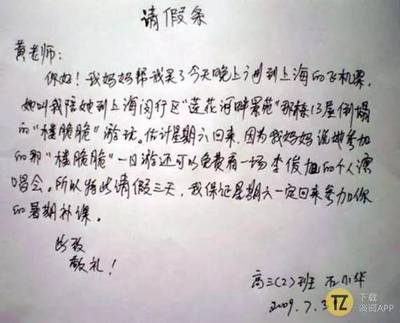 请假条
黄老师:
你好!我妈妈帮我买了今天晚上广州到上海的飞机票,
她叫我陪她到上海闵行区“莲花河畔景苑”那栋13层倒塌
的“楼脆脆”游玩。估计星期六回来,因为我妈妈说她参加
的那“楼脆脆”一日游还可以免费看一场李俊的个人演
唱会。所以特此请假三天,我保证星期六一定回来参加你
的暑期补课。
此致
敬礼!
高三(2)班 小华
2009.7.3
TZ 下载
谈资APP